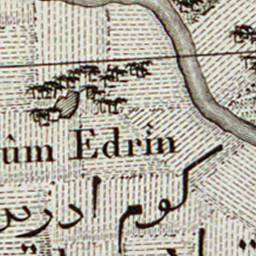 ûm Edrin
كوم ادرين